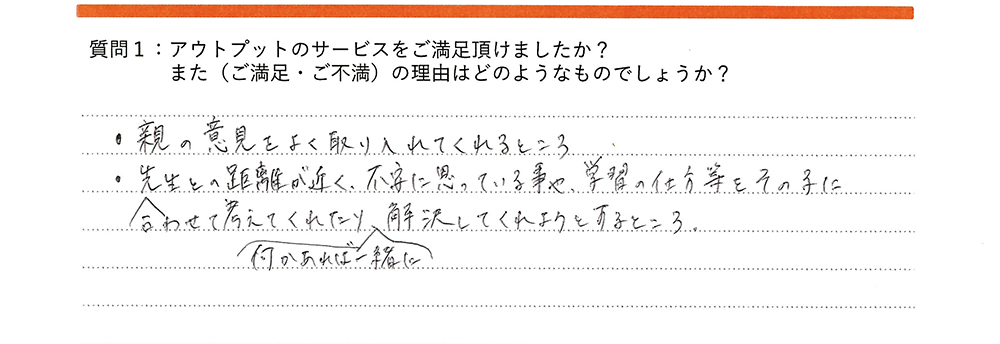 質問１：アウトプットのサービスをご満足頂けましたか？
また（ご満足・ご不満）の理由はどのようなものでしょうか？
・親の意見をよく取り入れてくれるところ
・先生との距離が近く、不安に思っている事や、学習の仕方等をその子に
合わせて考えてくれたり、解決してくれようとするところ。
何かあれば一緒に